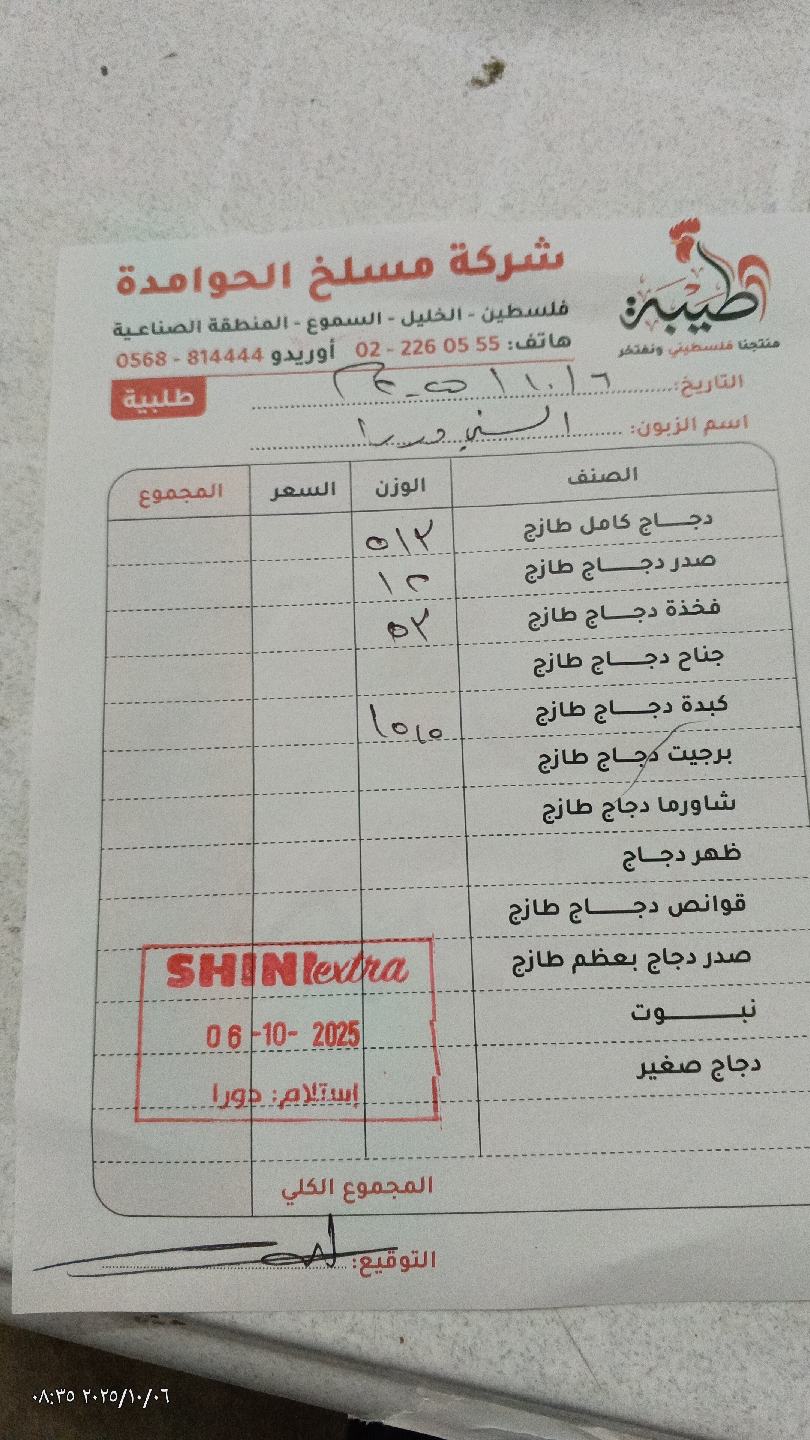 شركة مسلخ الحوامدة
طيبة
منتجنا فلسطيني ونفتخر
فلسطين - الخليل - السموع - المنطقة الصناعية
هاتف: 02 - 226 05 55 أوريدو 0568 - 814444
طلبية
التاريخ:
اسم الزبون: السني دورا
الصنف الوزن السعر المجموع
دجاج كامل طازج ٥١٢
صدر دجاج طازج
فخذة دجاج طازج ٥٢
جناح دجاج طازج
كبدة دجاج طازج
برجيت دجاج طازج
شاورما دجاج طازج
ظهر دجاج
قوانص دجاج طازج
صدر دجاج بعظم طازج
نبوت
دجاج صغير
SHINI extra
06-10- 2025
إستلام: دورا
المجموع الكلي
التوقيع:
٢٠٢٥/١٠/٠٦ ٠٨:٣٥